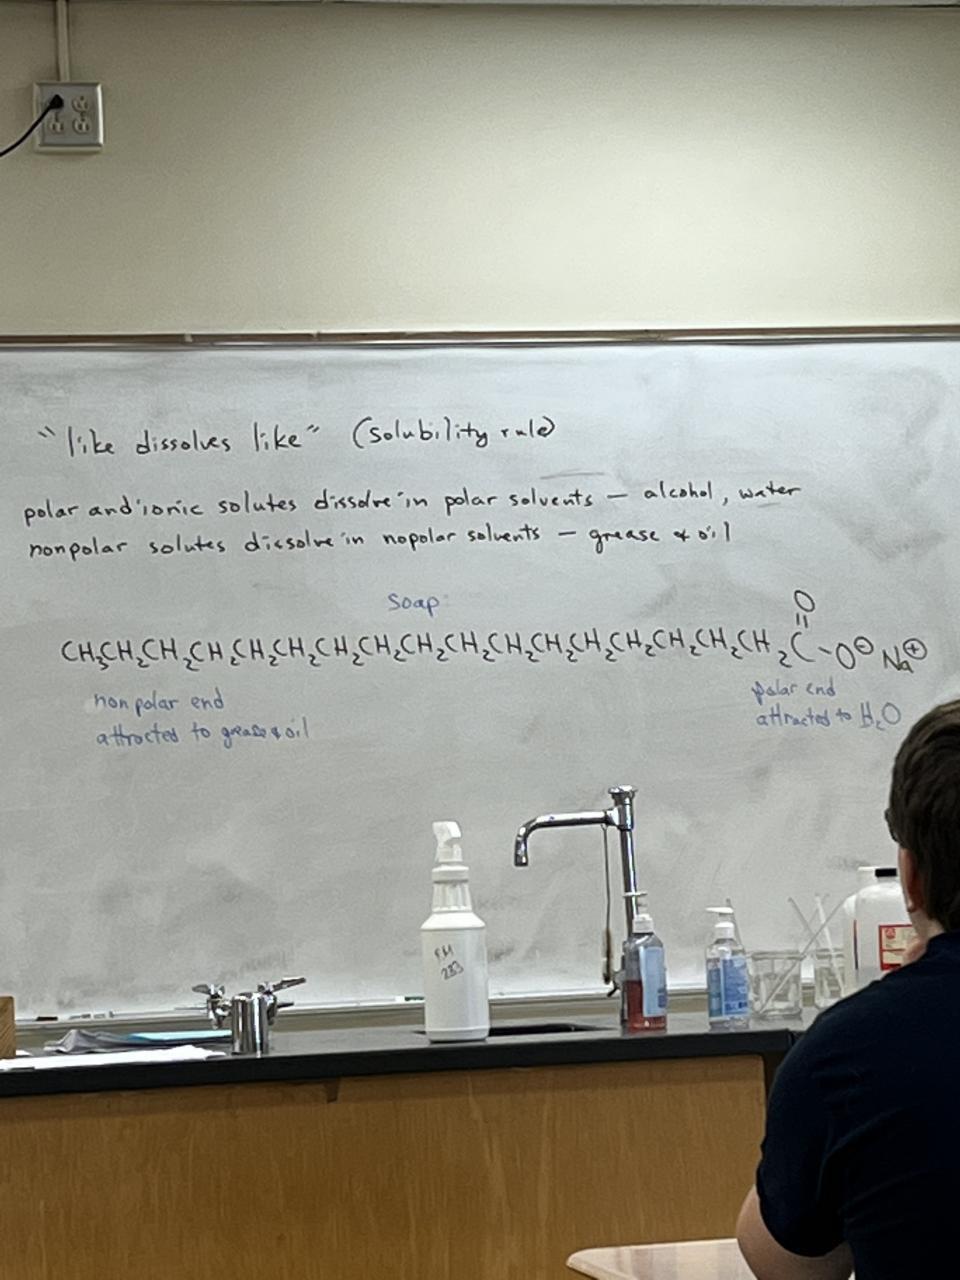 "like dissolves like" (solubility rule)
polar and ionic solutes dissolve in polar solvents – alcohol, water
nonpolar solutes dissolve in nopolar solvents – grease & oil
Soap
O
CH₃CH₂CH₂CH₂CH₂CH₂CH₂CH₂CH₂CH₂CH₂CH₂CH₂CH₂CH₂CH₂CH₂C-O⊖ Na⊕
nonpolar end
attracted to grease & oil
polar end
attracted to H₂O